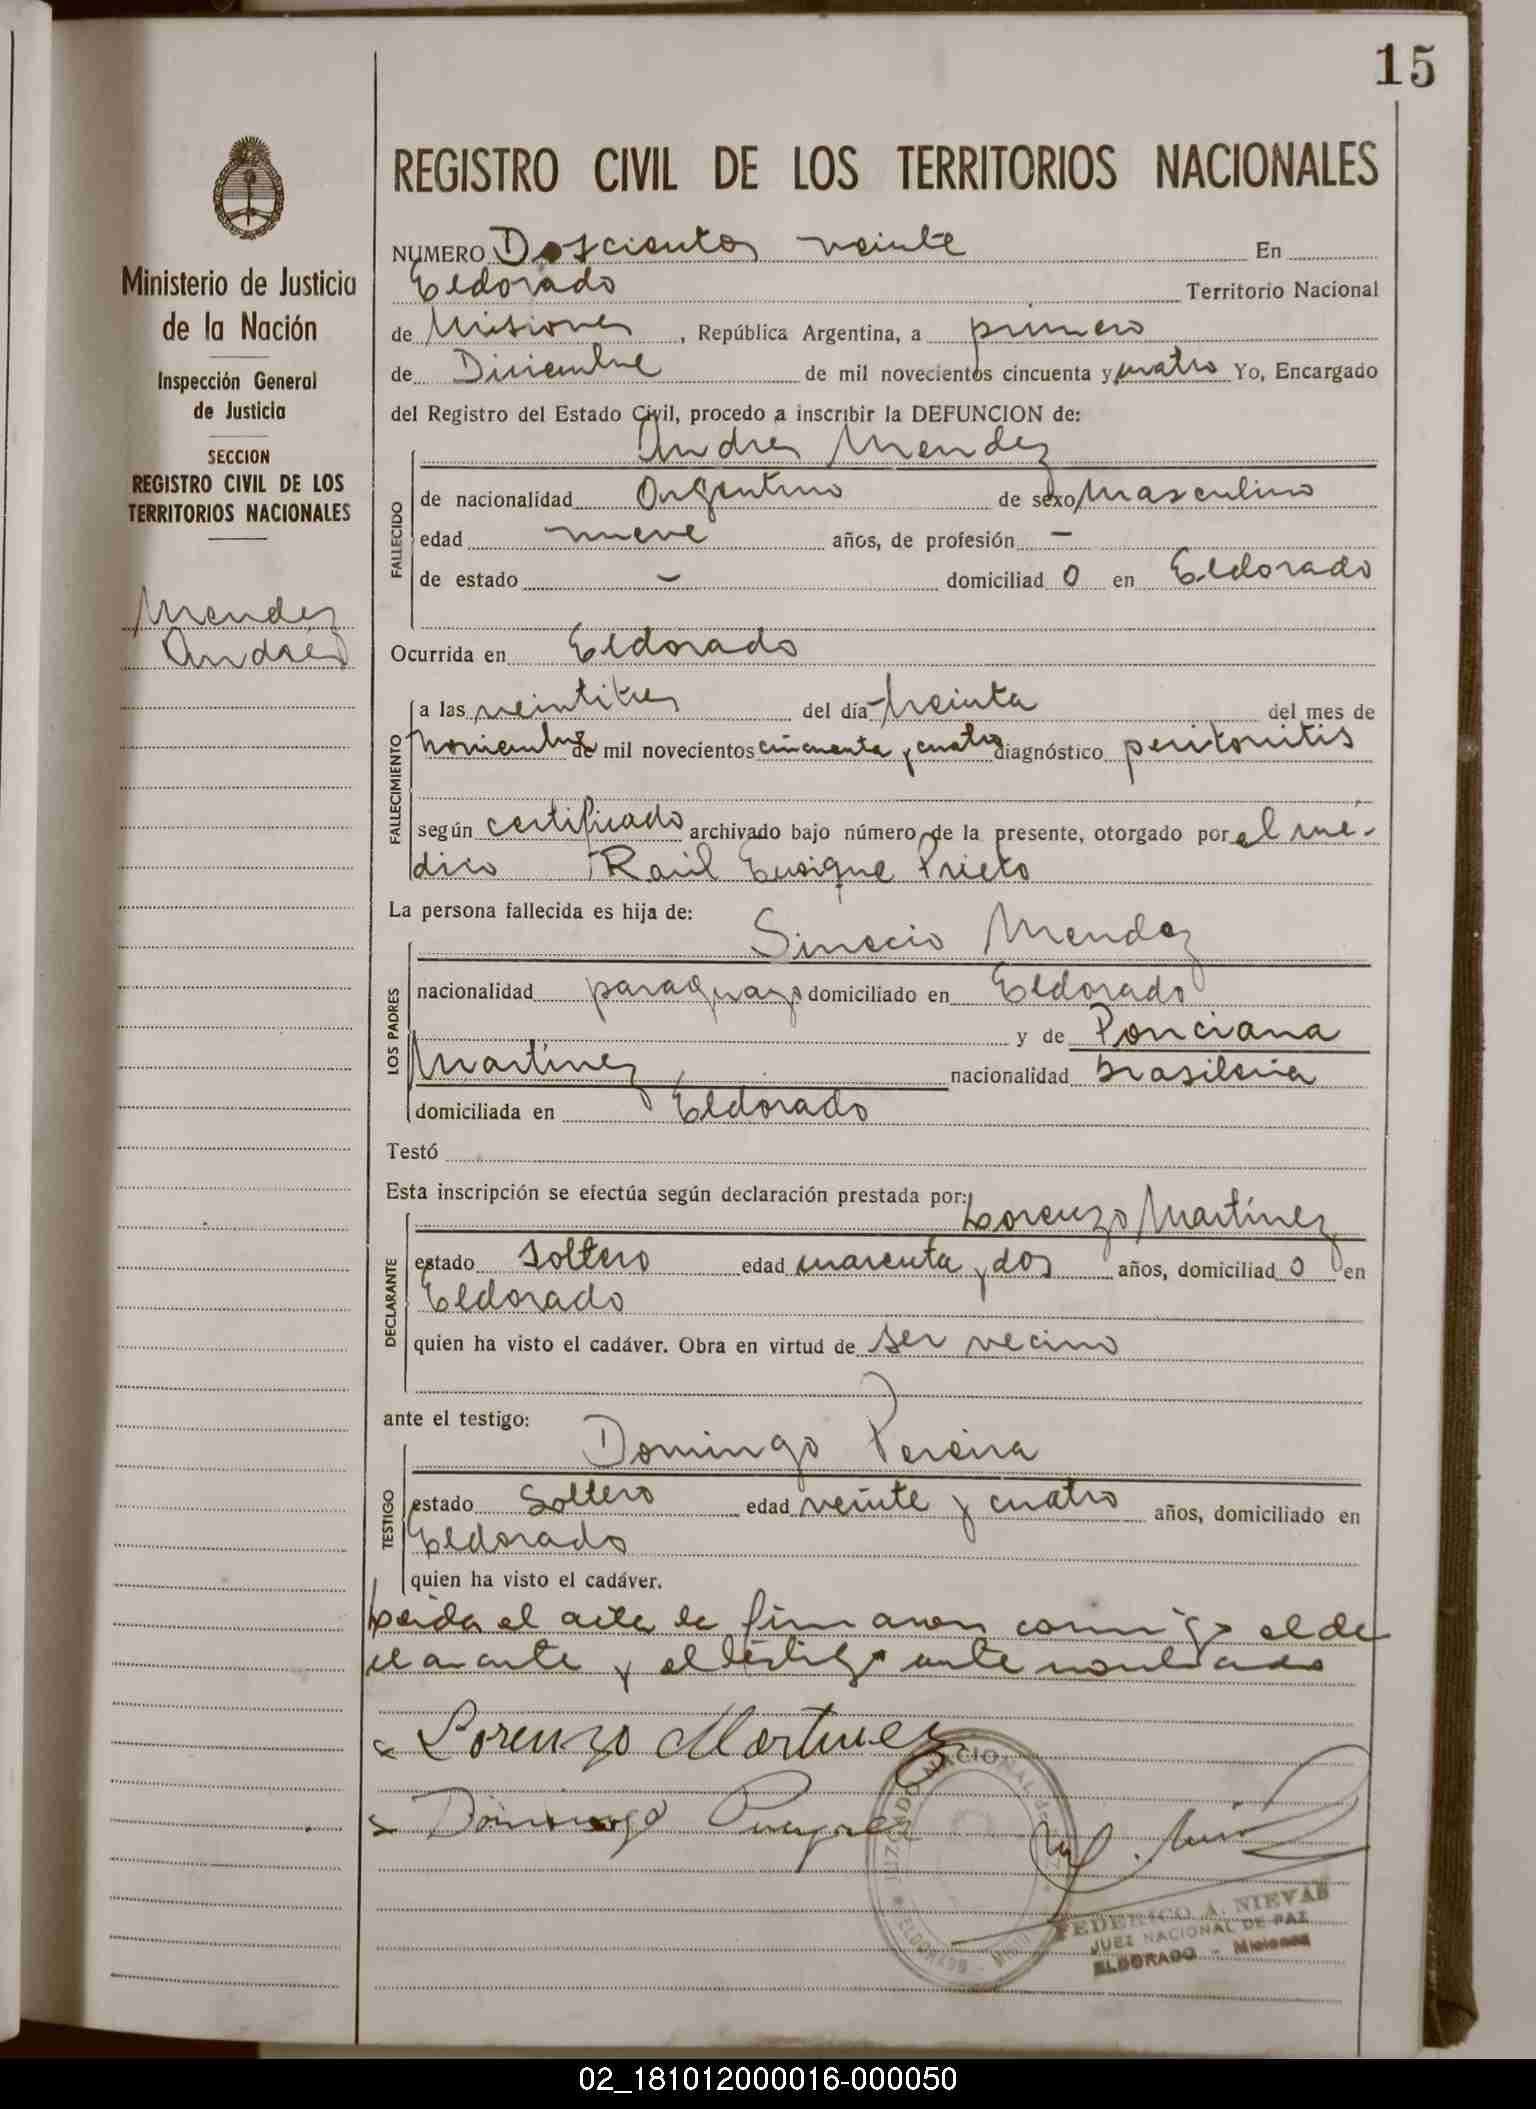 15
REGISTRO CIVIL DE LOS TERRITORIOS NACIONALES
Ministerio de Justicia
de la Nación
Inspección General
de Justicia
SECCION
REGISTRO CIVIL DE LOS
TERRITORIOS NACIONALES
Mendez
Andrés
NUMERO Doscientos veinte En
Eldorado Territorio Nacional
de Misiones, República Argentina, a primero
de Diciembre de mil novecientos cincuenta y cuatro Yo, Encargado
del Registro del Estado Civil, procedo a inscribir la DEFUNCION de:
Andres Mendez
FALLECIDO
de nacionalidad Argentino de sexo Masculino
edad nueve años, de profesión -
de estado - domiciliad o en Eldorado
Ocurrida en Eldorado
FALLECIMIENTO
a las veintitres del día treinta del mes de
Noviembre de mil novecientos cincuenta y cuatro diagnóstico peritonitis
según certificado archivado bajo número de la presente, otorgado por el mé-
dico Raúl Enrique Prieto
La persona fallecida es hija de:
Sinecio Mendez
LOS PADRES
nacionalidad paraguayo domiciliado en Eldorado
y de Ponciana
Martínez nacionalidad brasileña
domiciliada en Eldorado
Testó
Esta inscripción se efectúa según declaración prestada por:
Lorenzo Martínez
DECLARANTE
estado soltero edad cuarenta y dos años, domiciliad o en
Eldorado
quien ha visto el cadáver. Obra en virtud de ser vecino
ante el testigo:
Domingo Pereira
TESTIGO
estado Soltero edad veinte y cuatro años, domiciliado en
Eldorado
quien ha visto el cadáver.
Leida el acta la firmaron conmigo el de
clarante y el testigo ante nombrado
Lorenzo Martinez
Domingo
JUZGADO NACIONAL de PAZ
ELDORADO - Misiones
FEDERICO A. NIEVAS
JUEZ NACIONAL DE PAZ
ELDORADO - Misiones
02_181012000016-000050